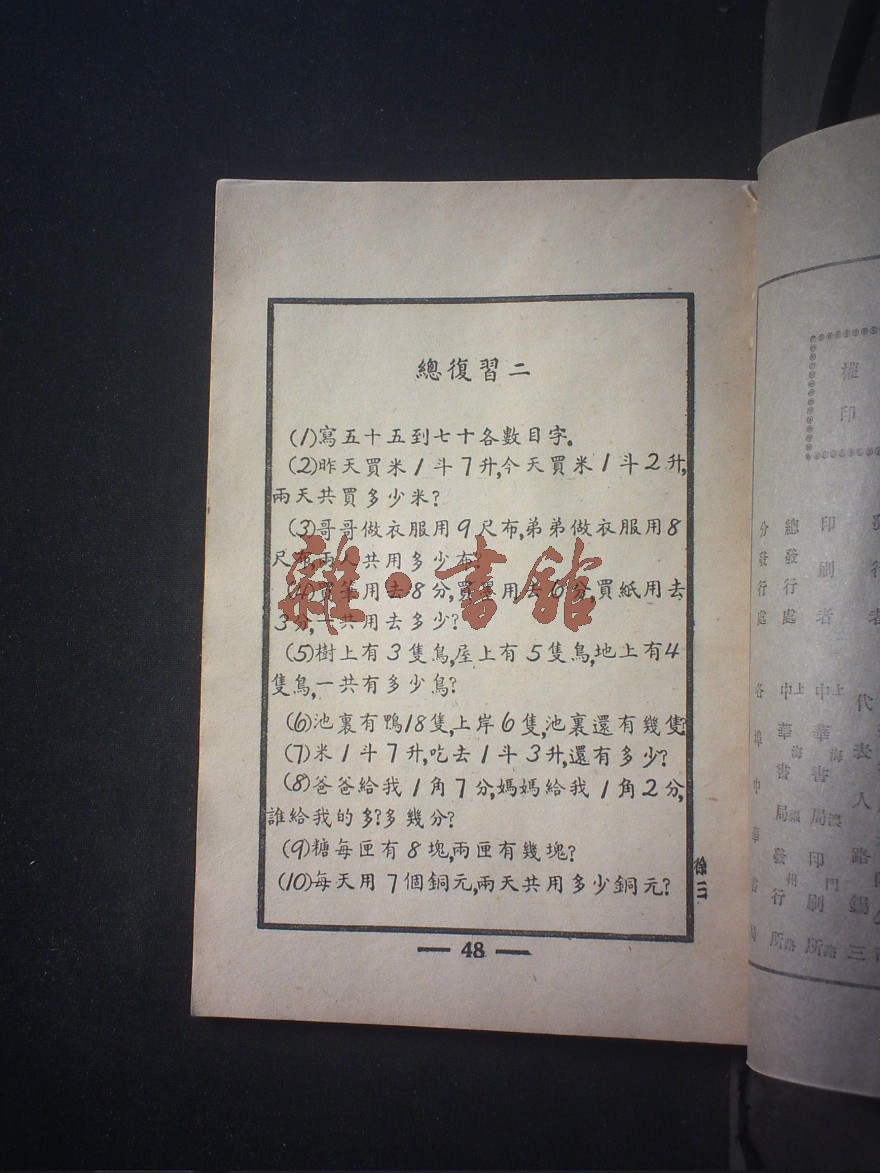 總復習二
(1)寫五十五到七十各數目字。
(2)昨天買米1斗7升,今天買米1斗2升,
兩天共買多少米?
(3)哥哥做衣服用9尺布,弟弟做衣服用8
尺布,兩人共用多少布?
(4)買筆用去8分,買墨用去6分,買紙用去
3分,一共用去多少?
(5)樹上有3隻鳥,屋上有5隻鳥,地上有4
隻鳥,一共有多少鳥?
(6)池裏有鴨18隻,上岸6隻,池裏還有幾隻?
(7)米1斗7升,吃去1斗3升,還有多少?
(8)爸爸給我1角7分,媽媽給我1角2分,
誰給我的多?多幾分?
(9)糖每匣有8塊,兩匣有幾塊?
(10)每天用7個銅元,兩天共用多少銅元?
— 48 —
雜·書館
權印
代表人
印刷者
總發行處
分發行處
上海
中華書局印刷所
上海
中華書局發行所
各埠中華書局